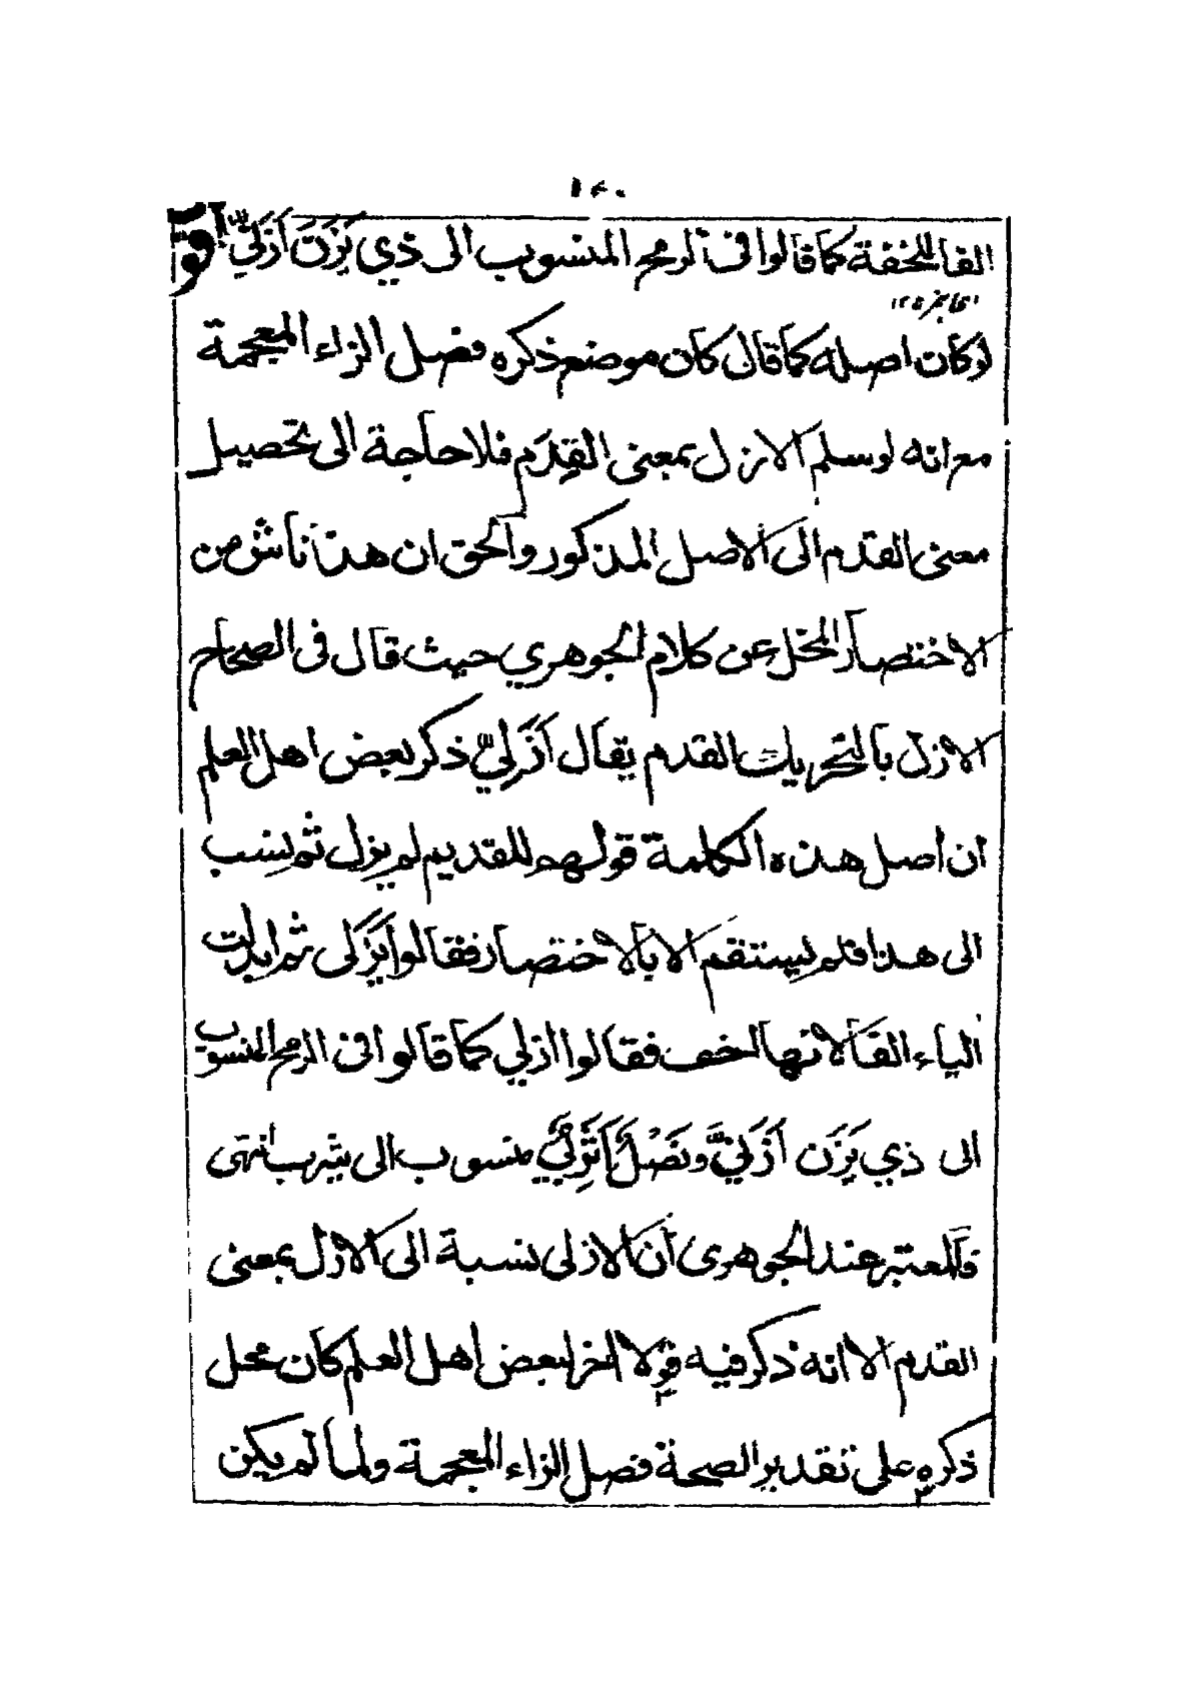 ١٤٠
الفا للخفة كما قالوا فى الرمح المنسوب الى ذي يَزَنَ اَزَنِيٌّ اقول
لو كان اصله كما قال كان موضع ذكره فصل الزاء المعجمة
مع انه لو سلم الازل بمعنى القِدَم فلا حاجة الى تحصيل
معنى القدم الى الاصل المذكور والحق ان هذا ناش من
الاختصار المخل عن كلام الجوهري حيث قال فى الصحاح
الازل بالتحريك القدم يقال اَزَلِيٌّ ذكر بعض اهل العلم
ان اصل هذه الكلمة قولهم للقديم لم يزل ثم نسب
الى هذا فلم يستقم الا بالاختصار فقالوا يَزَلى ثم ابدلت
الياء الفا لانها اخف فقالوا ازلي كما قالوا فى الرمح المنسوب
الى ذي يَزَن اَزَنِيٌّ ونَصْلٌ اَثْرَبِيٌّ منسوب الى يثرب انتهى
فالمعتبر عند الجوهرى ان الازلى نسبة الى الازل بمعنى
القدم الا انه ذكر فيه قولا اخر لبعض اهل العلم كان محل
ذكره على تقدير الصحة فصل الزاء المعجمة ولما لم يكن